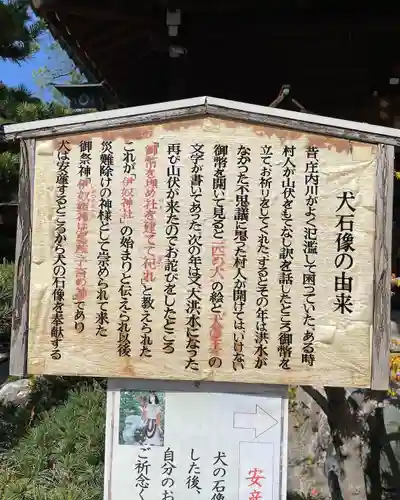 犬石像の由来
昔、庄内川がよく氾濫して困っていた。ある時
村人が山伏をもてなし訳を話したところ御幣を
立てお祈りをしてくれた。するとその年は洪水が
なかった不思議に思った村人が開けてはいけない
御幣を開いて見ると一匹の犬の絵と
文字が書いてあった。次の年は又、大洪水になった
再び山伏が来たのでお詫びをしたところ
「御幣を埋め社を建てて祀れ」と教えられた
これが「伊奴神社」の始まりと伝えられ以後
災難除けの神様として崇められて来た
御祭神の神であり
犬は安産するところから犬の石像を奉献する
犬の石像
した後、
自分のお
ご祈念く
安産